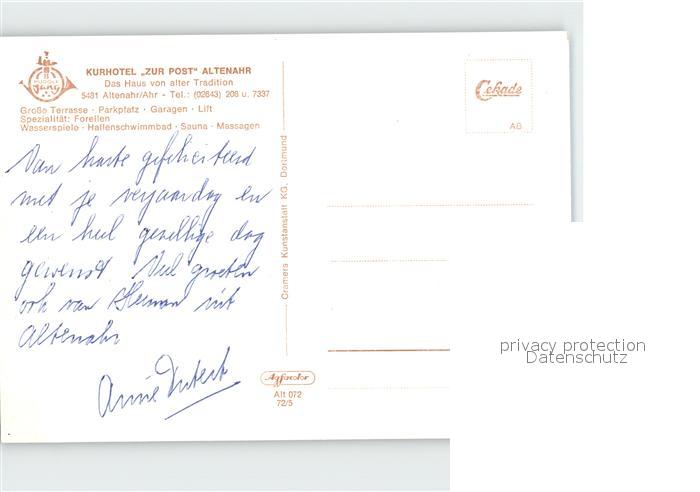 KURHOTEL „ZUR POST" ALTENAHR
Das Haus von alter Tradition
5481 Altenahr/Ahr - Tel.: (02643) 208 u. 7337
Große Terrasse · Parkplatz · Garagen · Lift
Spezialität: Forellen
Wasserspiele · Hallenschwimmbad · Sauna · Massagen
Van harte gefeliciteerd
met je verjaardag en
een heel gezellige dag
gewenst. Veel groeten
ook van Herman uit
Altenahr
Annie
Cramers Kunstanstalt KG, Dortmund
Agfacolor
Alt 072
72/5
Cekade
AG
privacy protection
Datenschutz